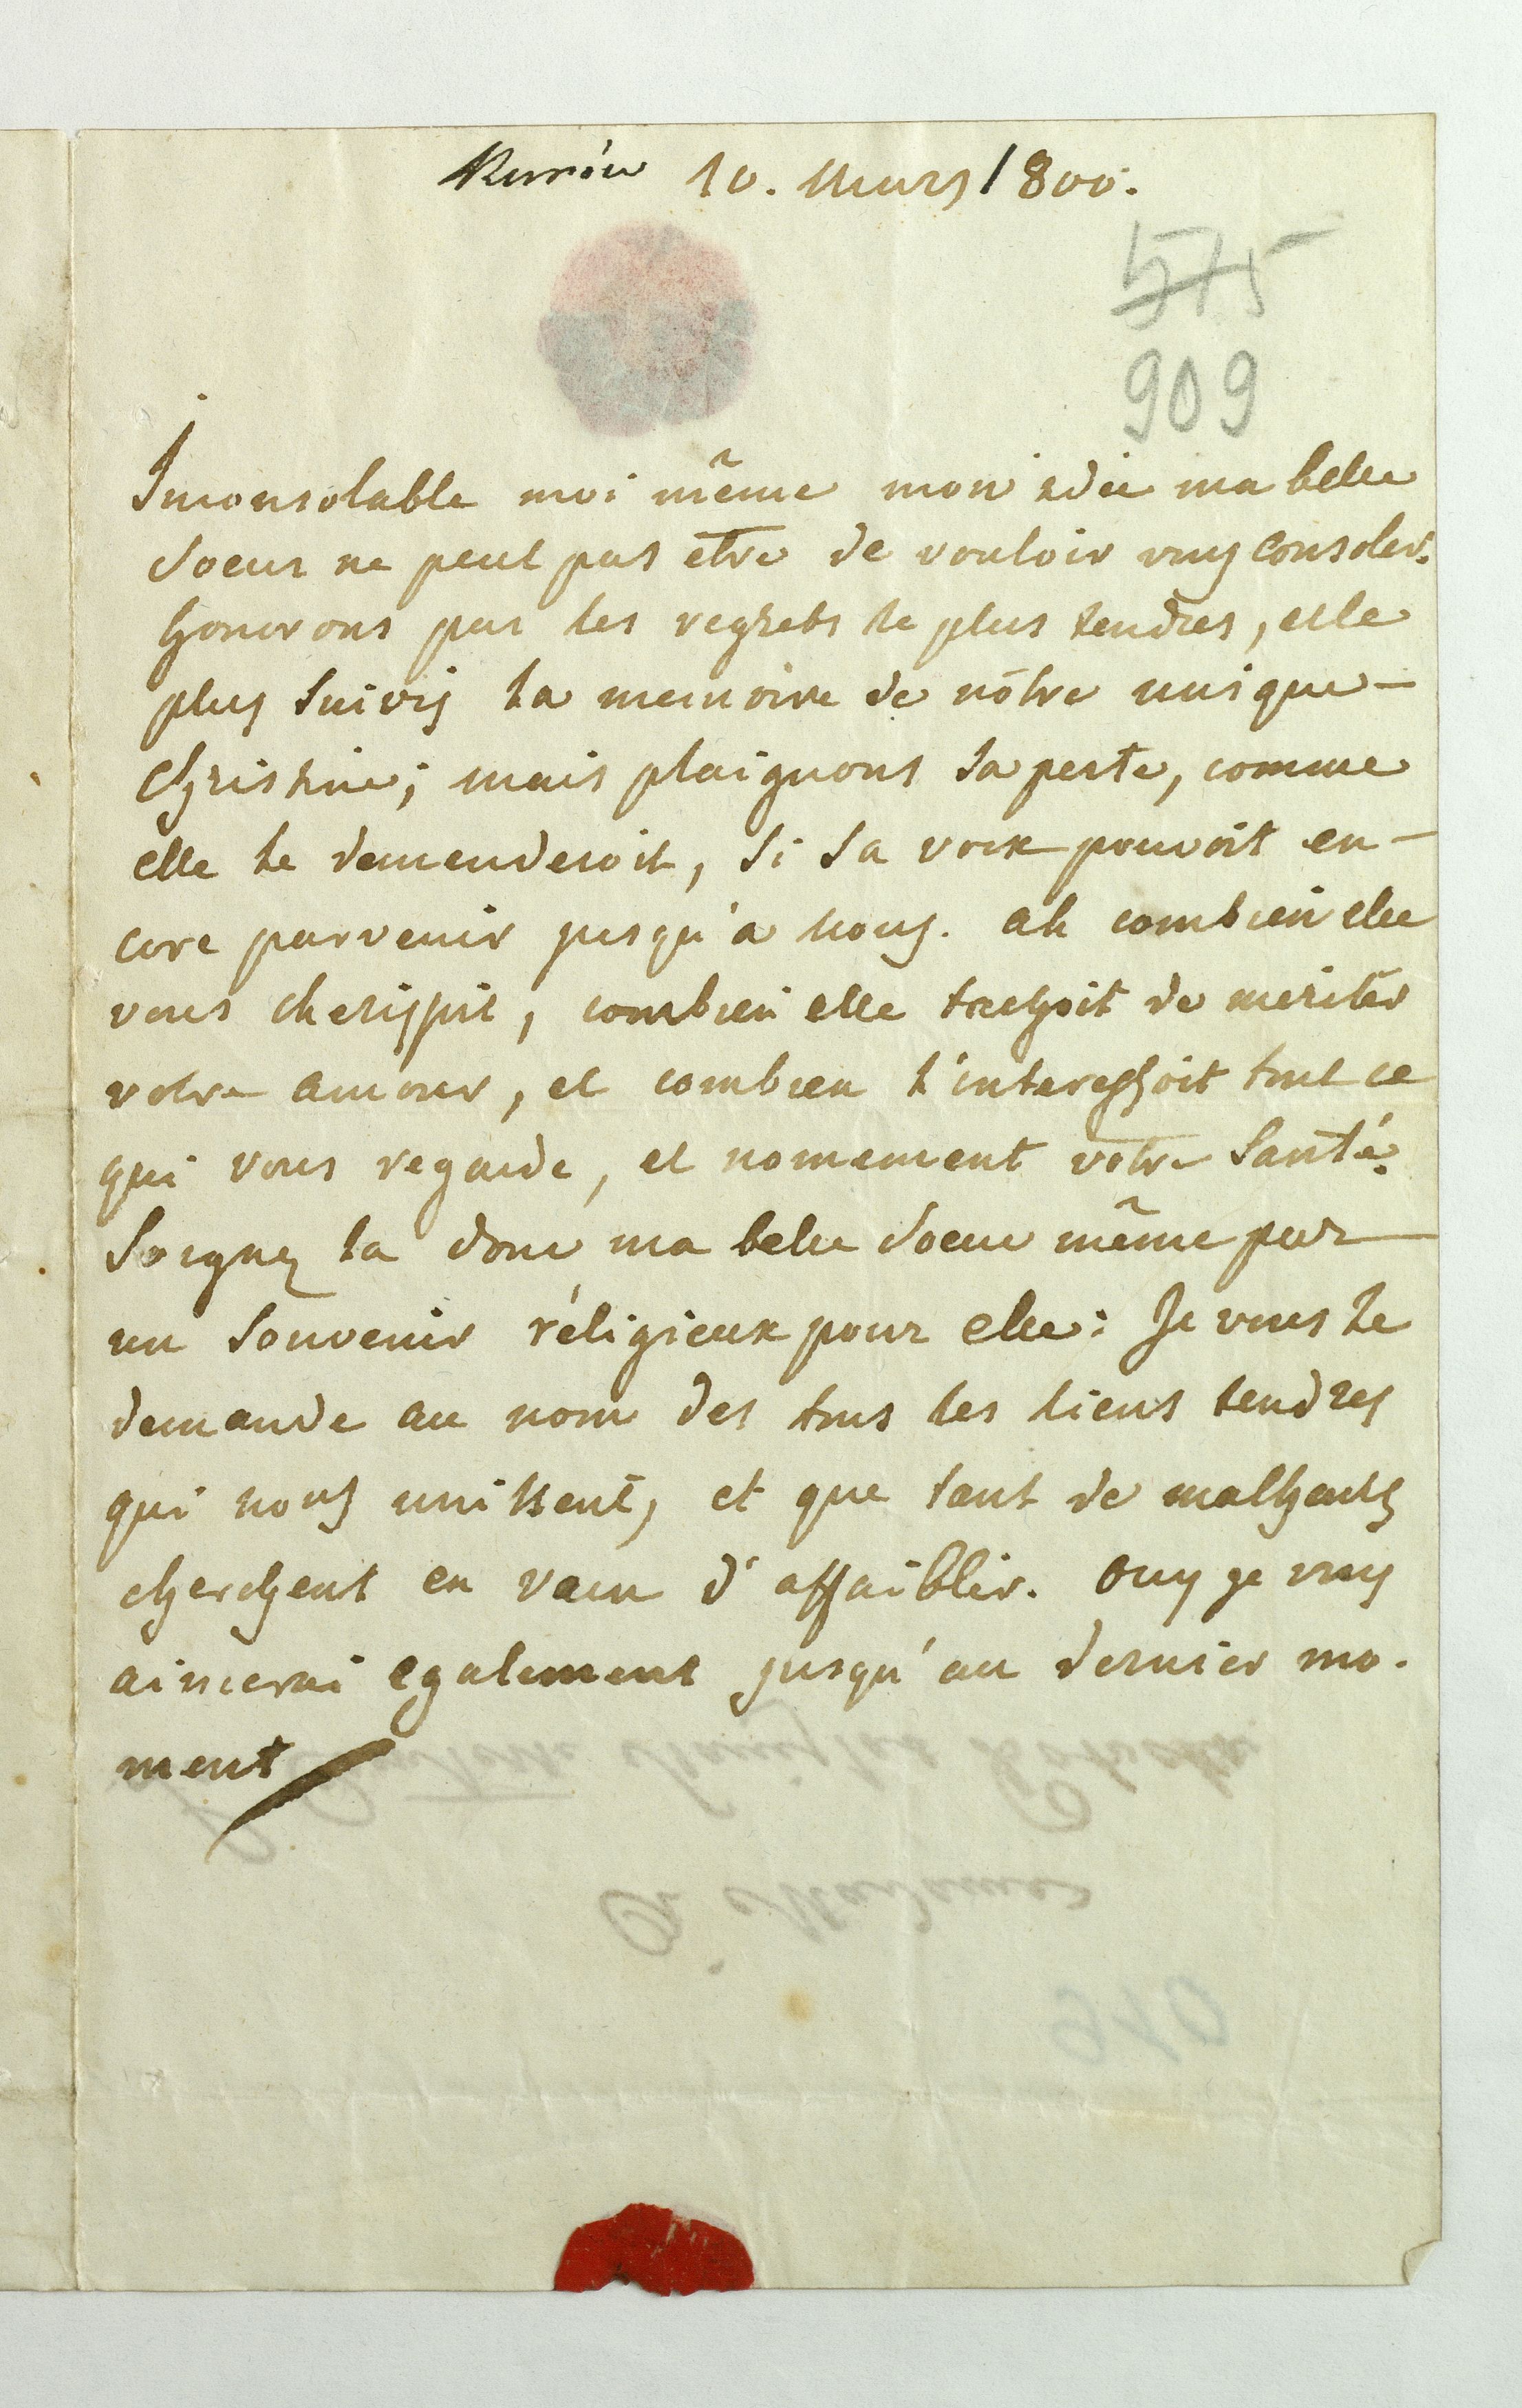 Kurów 10. Mars 1800.
575
909
Inconsolable moi même mon idée ma belle
Soeur ne peut pas etre de vouloir vous consoler.
honorons par les regrets le plus tendres, elle
plus suivis la memoire de nôtre unique
Christine; mais plaignons sa perte, comme
elle le demenderoit, si sa voix pouvoit en-
core parvenir jusqu'a nous. ah combien elle
vous cherissoit, combien elle tachoit de meriter
votre amour, et combien l'interessoit tout ce
qui vous regarde, et nomement votre Santé.
Soignez la donc ma belle Soeur même par
un Souvenir réligieux pour elle: Je vous le
demande au nom des tous les liens tendres
qui nous unissent, et que tant de malheurs
cherchent en vain d'affaiblir. Ouy je vous
aimerai egalement jusqu'au dernier mo-
ment
A Madame
910